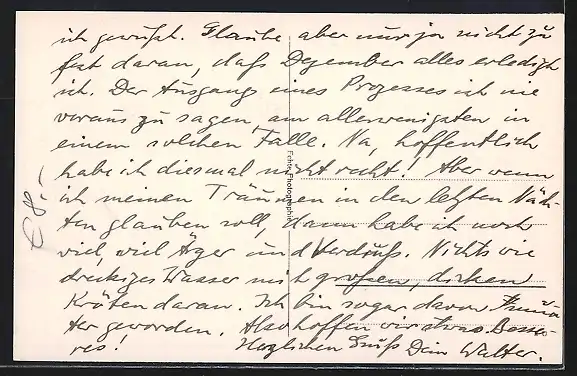 ich gewußt. Glaube aber nur ja nicht zu
fest daran, daß Dezember alles erledigt
ist. Der Ausgang eines Prozesses ist nie
voraus zu sagen, am allerwenigsten in
einem solchen Falle. Na, hoffentlich
habe ich diesmal nicht recht! Aber wenn
ich meinen Träumen in den letzten Näch-
ten glauben soll, dann habe ich noch
viel, viel Ärger und Verdruß. Nichts wie
dreckiges Wasser mit großen, dicken
Kröten daran. Ich bin sogar davon
ter geworden. Also hoffen wir etwas Besse-
res! Herzlichen Gruß Dein Walter.
Echte Photographie
€ 8.-